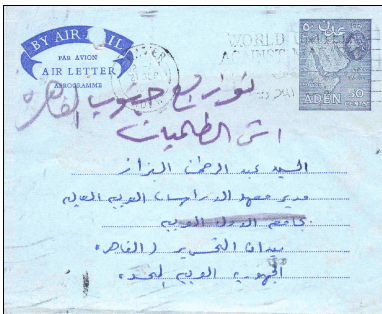 BY AIR MAIL
PAR AVION
AIR LETTER
AEROGRAMME
WORLD UNITED
AGAINST M
عدن
ADEN
50
جنوب القاهرة
السيد عبد الرحمن البزاز
مدير معهد الدراسات العربية العالية
بجامعة الدول العربية
ميدان التحرير (القاهرة
الجمهورية العربية المتحدة